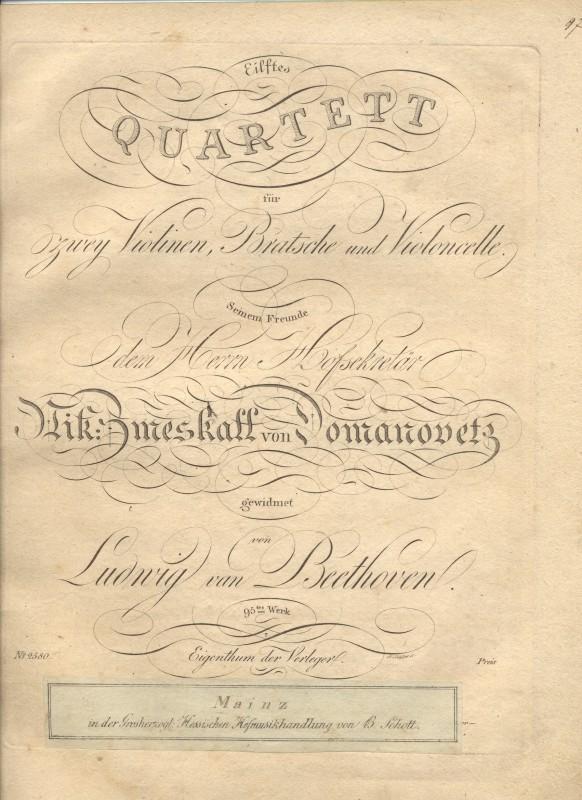 Eilftes
QUARTETT
für
zwey Violinen, Bratsche und Violoncelle.
Seinem Freunde
dem Herrn Hofsekretär
Nik: Zmeskall von Domanovetz
gewidmet
von
Ludwig van Beethoven.
95tes Werk
Eigenthum der Verleger.
No. 2580.
Preis
Mainz
in der Grosherzogl. Hessischen Hofmusikhandlung von B. Schott.